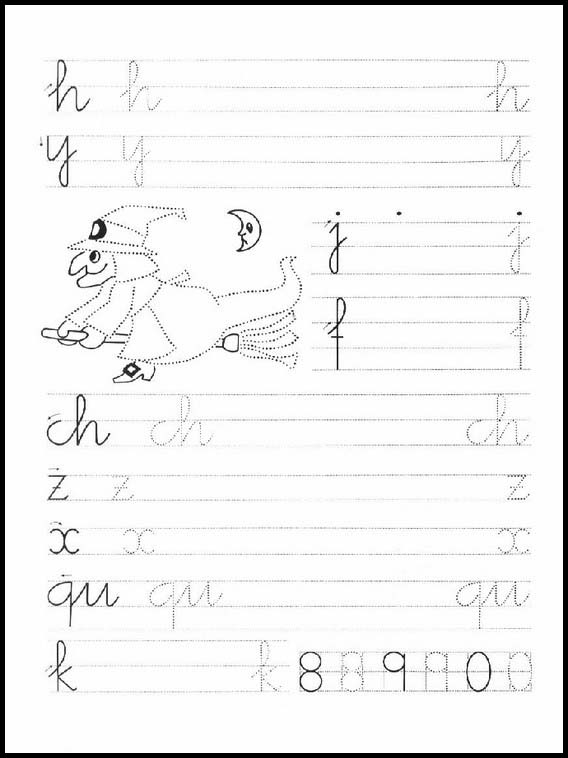 h h h
y y y
j j
f f
ch ch ch
z z z
x x x
qu qu qu
k k 8 8 9 9 0 0